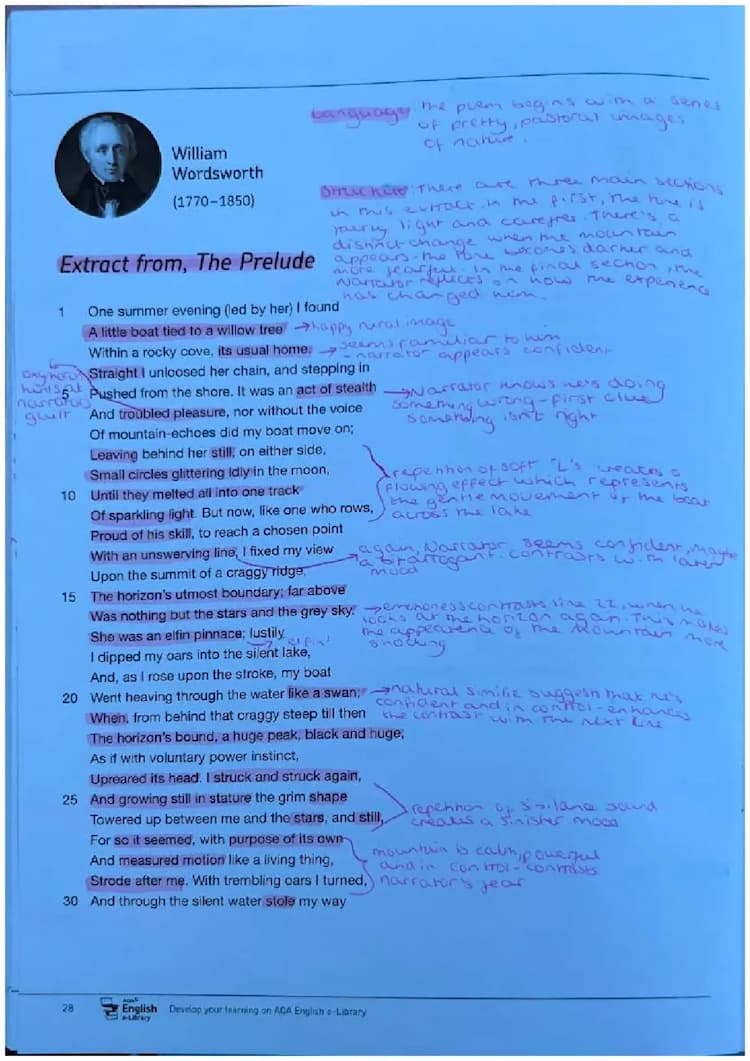 Language: The poem begins with a series
of pretty, pastoral images
of nature.
William
Wordsworth
(1770–1850)
Structure: There are three main sections
in this extract. In the first, the tone is
fairly light and carefree. There's a
distinct change when the mountain
appears - the tone becomes darker and
more fearful. In the final section, the
narrator reflects on how the experience
has changed him.
Extract from, The Prelude
1 One summer evening (led by her) I found
A little boat tied to a willow tree → happy rural image
Within a rocky cove, its usual home. → seems familiar to him
- narrator appears confident
Straight I unloosed her chain, and stepping in
oxymoron
hints at
narrators
guilt
5 Pushed from the shore. It was an act of stealth → Narrator knows he's doing
something wrong - first clue
something isn't right
And troubled pleasure, nor without the voice
Of mountain-echoes did my boat move on;
Leaving behind her still, on either side,
Small circles glittering idly in the moon,
repetition of soft 'L's creates a
flowing effect which represents
the gentle movement of the boat
across the lake
10 Until they melted all into one track
Of sparkling light. But now, like one who rows,
Proud of his skill, to reach a chosen point
With an unswerving line, I fixed my view
again, Narrator seems confident, maybe
a bit arrogant. contrasts with later
mood
Upon the summit of a craggy ridge,
15 The horizon's utmost boundary; far above
Was nothing but the stars and the grey sky. → emptiness contrasts line 22, when he
looks at the horizon again. This makes
the appearence of the Mountain more
shocking
She was an elfin pinnace; lustily
I dipped my oars into the silent lake,
And, as I rose upon the stroke, my boat
20 Went heaving through the water like a swan; → natural similie suggest that he's
confident and in control - enhances
the contrast with the next line
When, from behind that craggy steep till then
The horizon's bound, a huge peak, black and huge,
As if with voluntary power instinct,
Upreared its head. I struck and struck again,
25 And growing still in stature the grim shape
Towered up between me and the stars, and still,
repetition of sibilance sound
creates a sinister mood
For so it seemed, with purpose of its own
And measured motion like a living thing,
Strode after me. With trembling oars I turned,
mountain is calm, powerful
and in control - contrasts
narrator's fear
30 And through the silent water stole my way
28 AQA English e-Library Develop your learning on AQA English e-Library